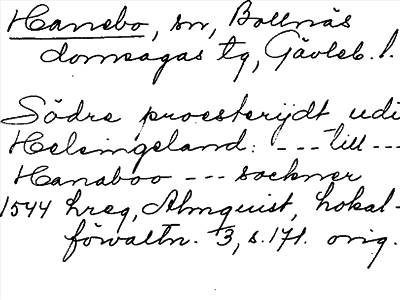 Hanebo, sn, Bollnäs
domsagas tg, Gävleb. l.
Södre proesterijdt udi
Helsingeland: --- till ---
Hanaboo --- sockner
1544 hreg, Almquist, Lokal-
förvaltn. 3, s. 171. orig.